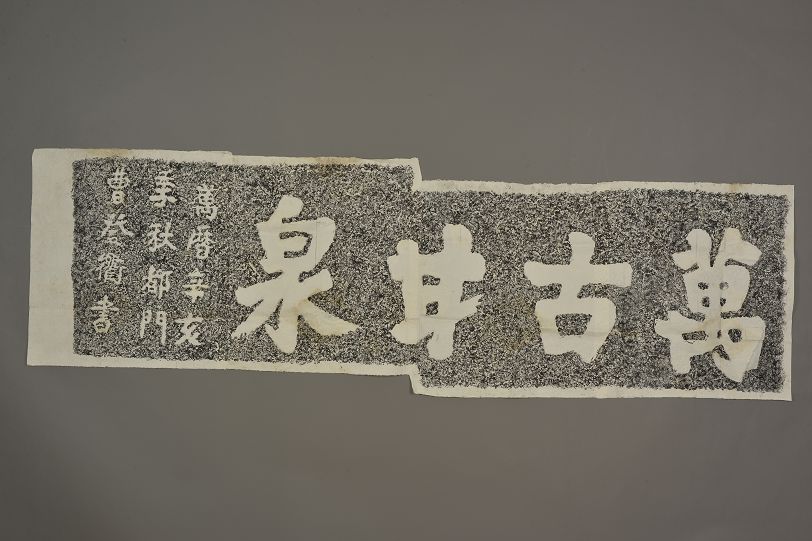 萬古甘泉
萬曆辛亥
季秋都門
曹登書